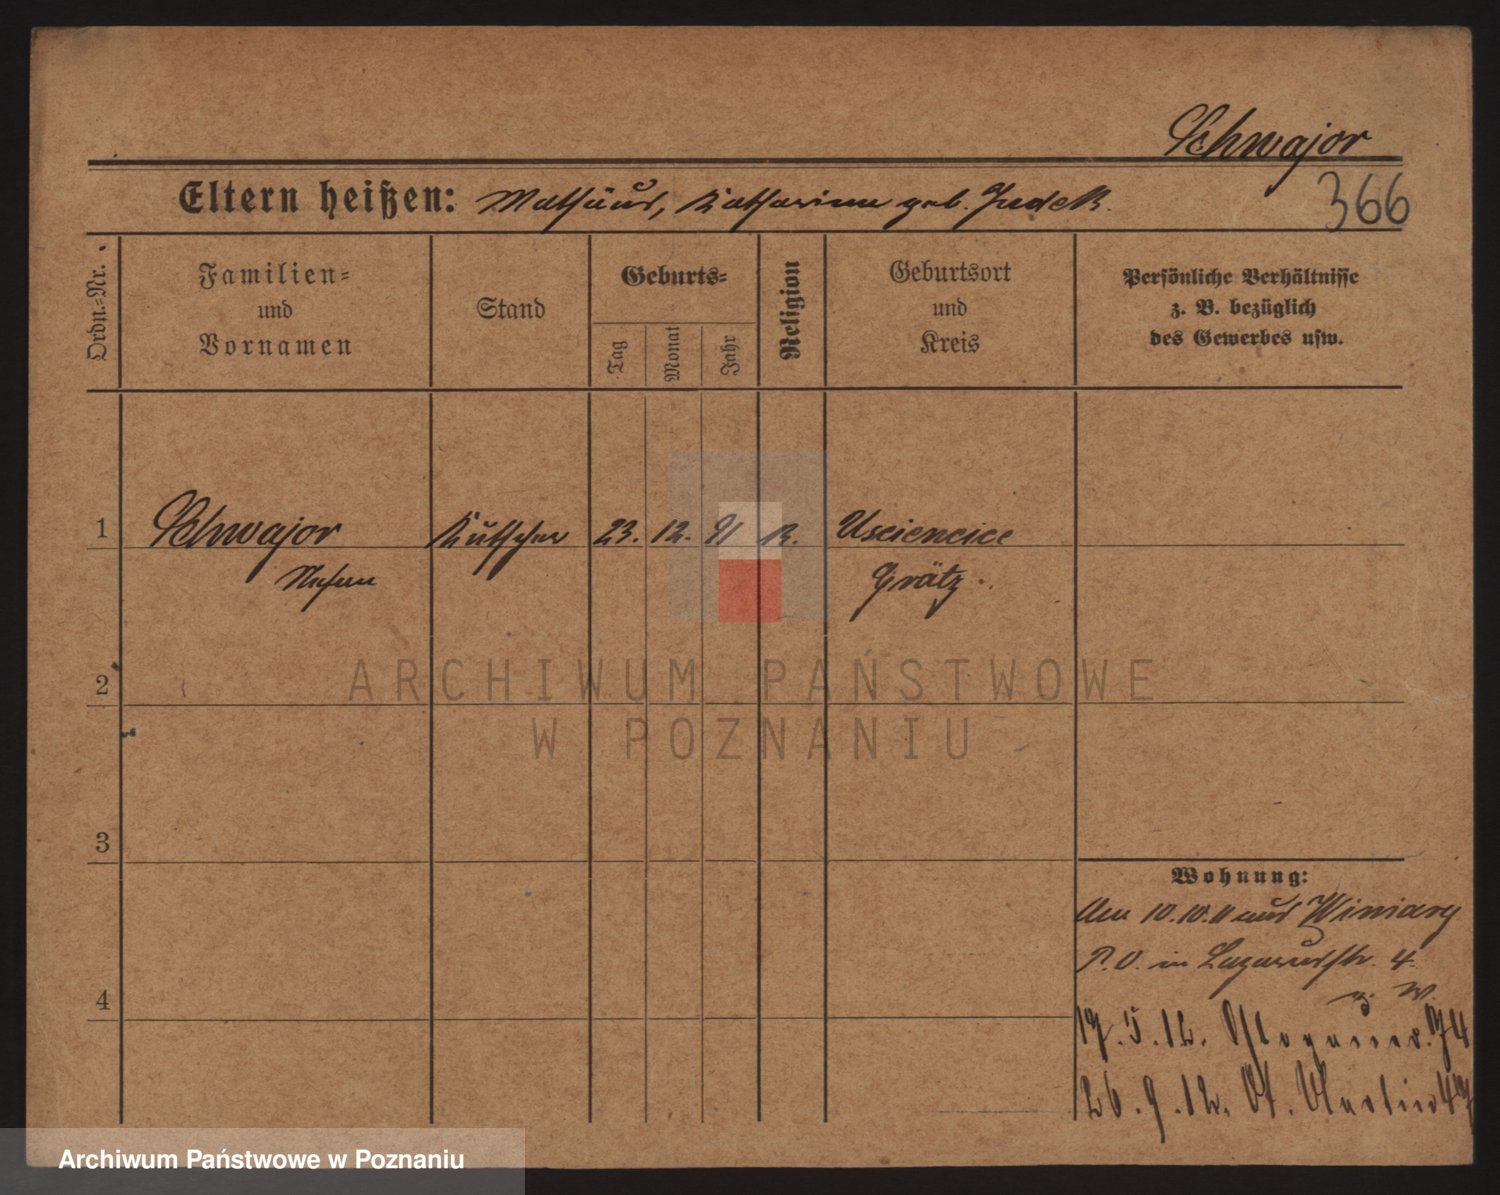 Schwajor
Eltern heißen: Mathäus, Katharina geb. Judek.
366
Ordn.-Nr.
Familien-
und
Vornamen
Stand
Geburts-
Tag
Monat
Jahr
Religion
Geburtsort
und
Kreis
Persönliche Verhältnisse
z. B. bezüglich
des Gewerbes usw.
1
Schwajor
Kutscher
23. 12. 91
K.
Usciencice
Grätz.
2
ARCHIWUM PAŃSTWOWE
W POZNANIU
3
4
Wohnung:
Am 10.10.11 aus Winiary
P.O. in Lazarusstr. 4.
z. W.
17.5.12. Glogauer. 74
26.9.12. St. Martin 47
Archiwum Państwowe w Poznaniu